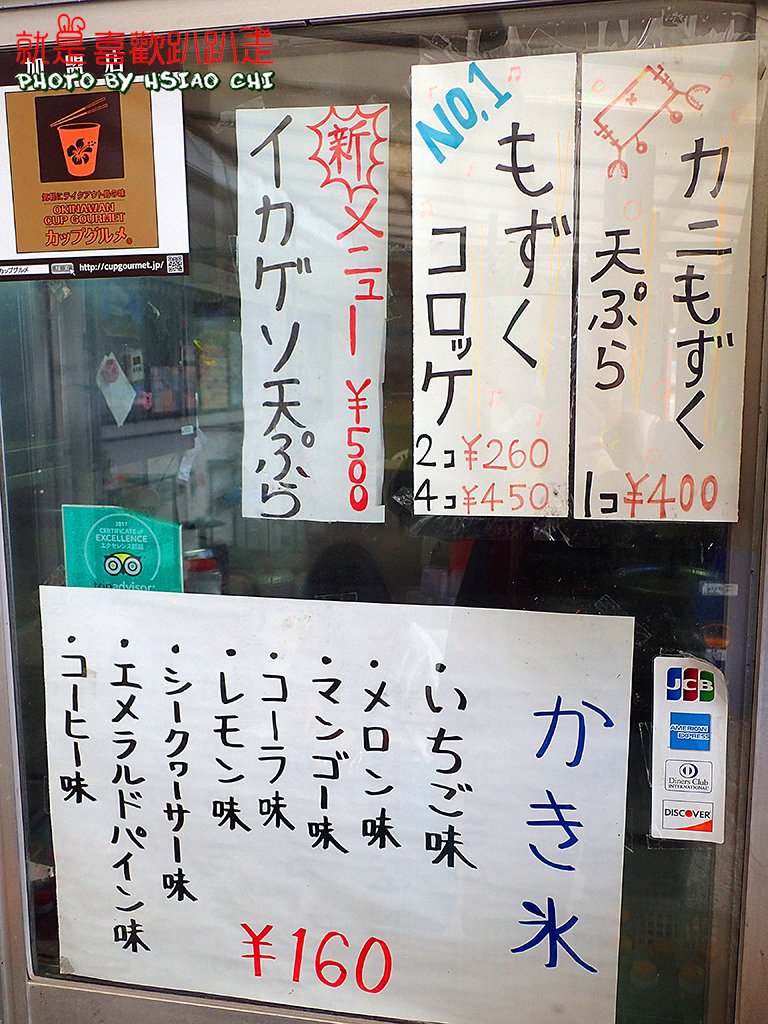 就是喜歡趴趴走
PHOTO BY HSIAO CHI
加盟店
気軽にテイクアウト島の味
OKINAWAN
CUP GOURMET
カップグルメ
カップグルメ
http://cupgourmet.jp/
カニもずく
天ぷら
1コ¥400
NO.1
もずく
コロッケ
2コ¥260
4コ¥450
新メニュー ¥500
イカゲソ天ぷら
2017
CERTIFICATE of
EXCELLENCE
エクセレンス認証
tripadvisor
かき氷
・いちご味
・メロン味
・マンゴー味
・コーラ味
・レモン味
・シークヮーサー味
・エメラルドパイン味
・コーヒー味
¥160
JCB
AMERICAN
EXPRESS
Diners Club
INTERNATIONAL
DISCOVER